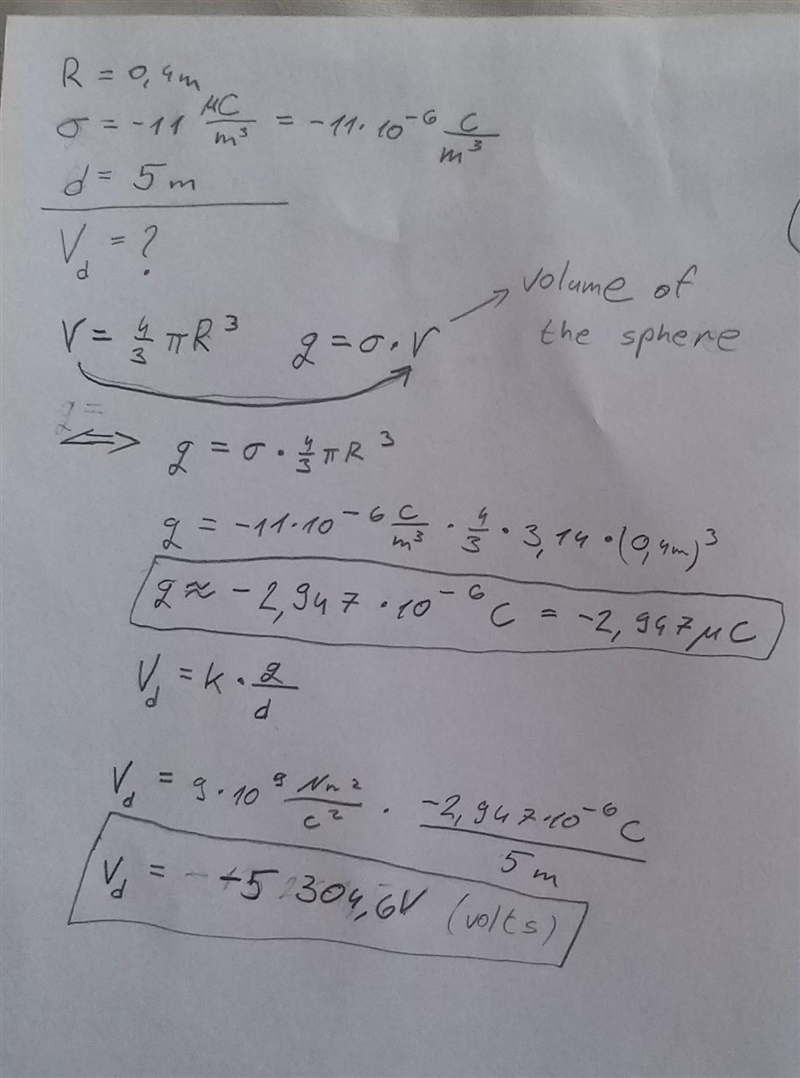 R = 0,4m
σ = -11 μC/m³ = -11·10⁻⁶ C/m³
d = 5m
V_d = ?
V = 4/3 πR³ q = σ·V → volume of
the sphere
q =
⇔ q = σ · 4/3 πR³
q = -11·10⁻⁶ C/m³ · 4/3 · 3,14 · (0,4m)³
q ≈ -2,947·10⁻⁶ C = -2,947μC
V_d = k · q/d
V_d = 9·10⁹ Nm²/C² · -2,947·10⁻⁶ C / 5m
V_d = -5 304,6V (volts)